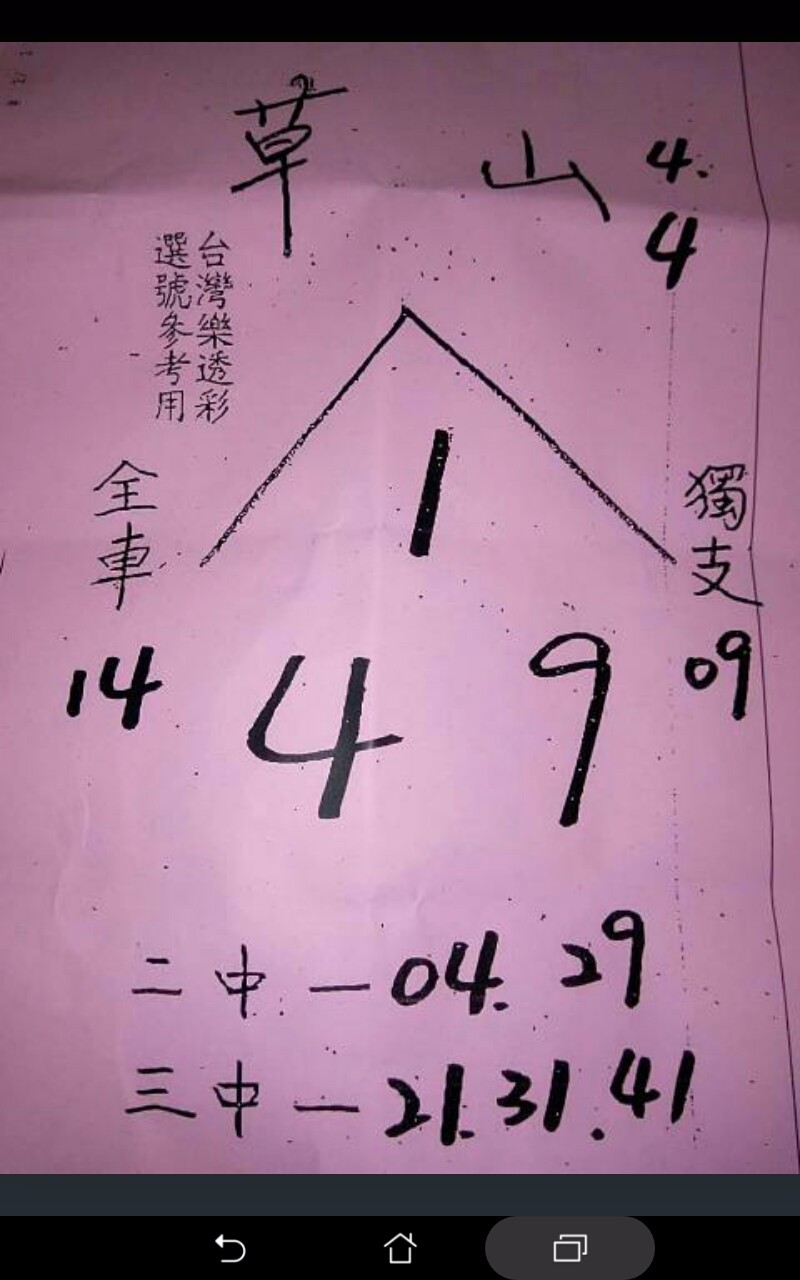 草 山
4.
4
台灣樂透彩
選號參考用
全車
獨支
1
14
4 9
09
二中一04. 29
三中一21.31.41